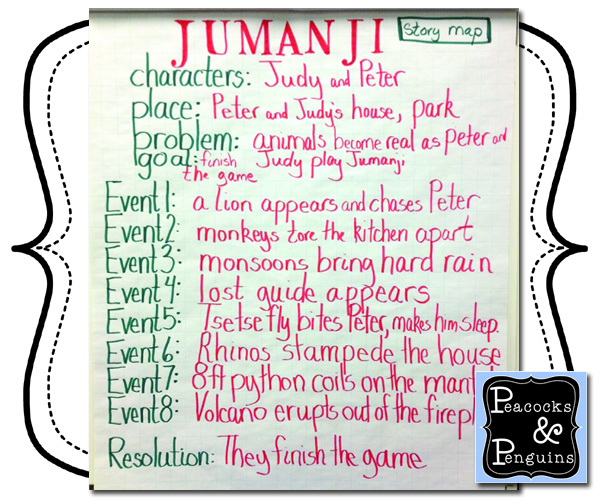 JUMANJI
Story map
characters: Judy and Peter
place: Peter and Judy's house, park
problem: animals become real as Peter and
Judy play Jumanji
goal: finish
the game
Event 1: a lion appears and chases Peter
Event 2: monkeys tore the kitchen apart
Event 3: monsoons bring hard rain
Event 4: Lost guide appears
Event 5: Tsetse fly bites Peter, makes him sleep.
Event 6: Rhinos stampede the house
Event 7: 8ft python coils on the mant
Event 8: Volcano erupts out of the firepl
Resolution: They finish the game
Peacocks
&
Penguins